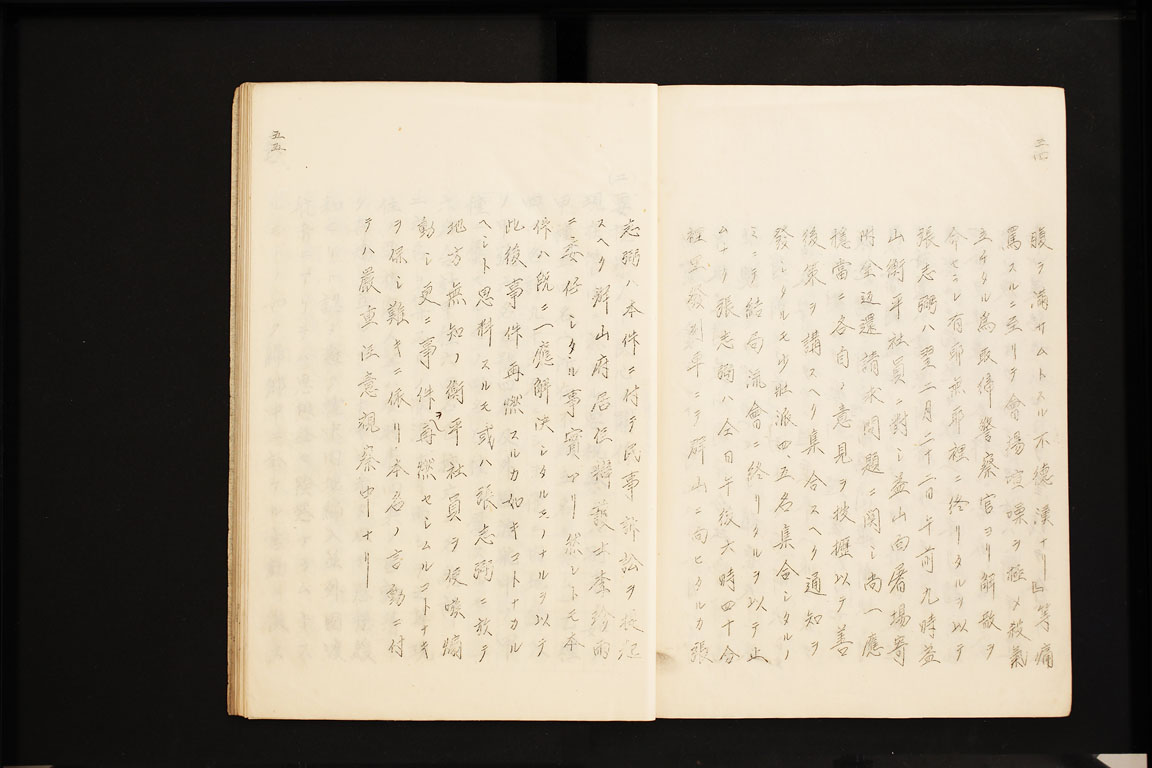 三四
腹ヲ滿サムトスル不德漢ナリ」等痛
罵スルニ至リテ會場喧噪ヲ極メ殺氣
立チタル為取締警察官ヨリ解散ヲ
命セラレ有耶無耶裡ニ終リタルヲ以テ
張志弼ハ翌二月二十二日午前九時益
山衡平社員ニ對シ益山面屠場寄
附金返還請求問題ニ関シ尚一應
穩當ニ各自ノ意見ヲ披攊以テ善
後策ヲ講スヘク集合スヘク通知ヲ
發シタルモ少壯派四、五名集合シタルノ
ミニテ結局流會ニ終リタルヲ以テ止
ムナク張志弼ハ仝日午後六時四十分
裡里發列車ニテ群山ニ向ヒタルカ張
五五
志弼ハ本件ニ付テ民事訴訟ヲ提起
スヘク群山府居住辯護士李珍雨
ニ委任シタル事實アリ然レトモ本
件ハ既ニ一應解決シタルモノナルヲ以テ
此後事件再燃スルカ如キコトナカル
ヘシト思料スルモ或ハ張志弼ニ於テ
地方無知ノ衡平社員ヲ使嗾煽
動シ更ニ事件ヲ再燃セシムルコトナキ
ヲ保シ難キニ依リ本名ノ言動ニ付
テハ嚴重注意視察中ナリ